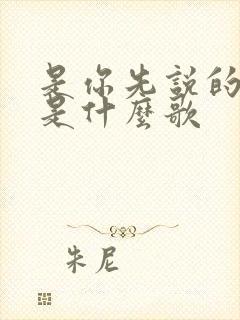 是你先説的
是什麼歌
朱尼